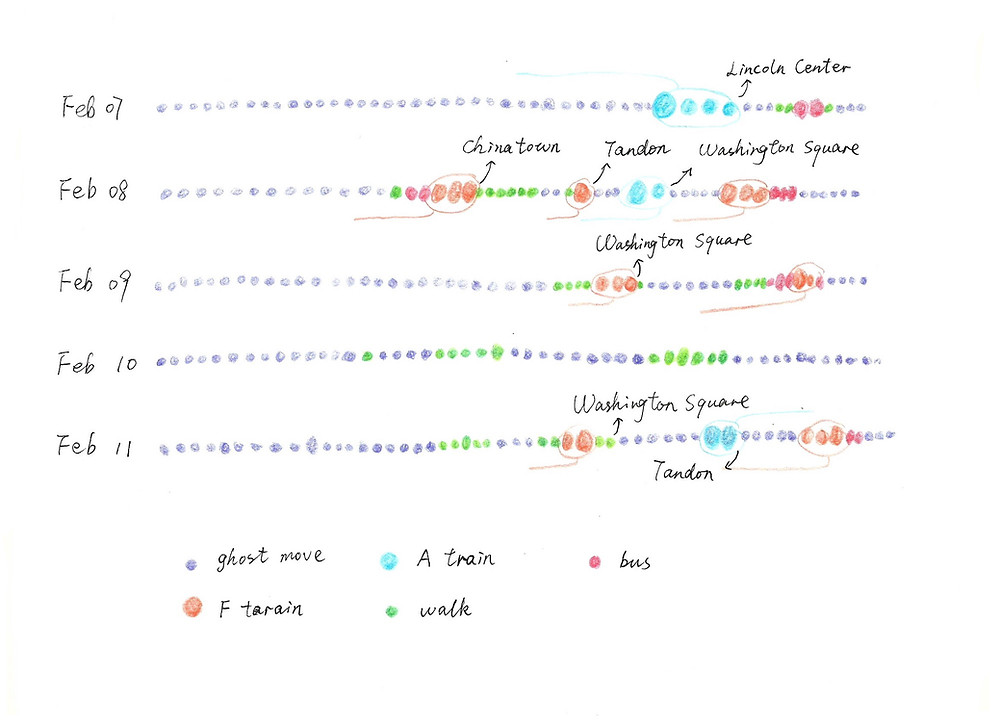 Lincoln Center
Feb 07
Chinatown Tandon Washington Square
Feb 08
Washington Square
Feb 09
Feb 10
Washington Square
Feb 11
Tandon
ghost move A train bus
F tarain walk